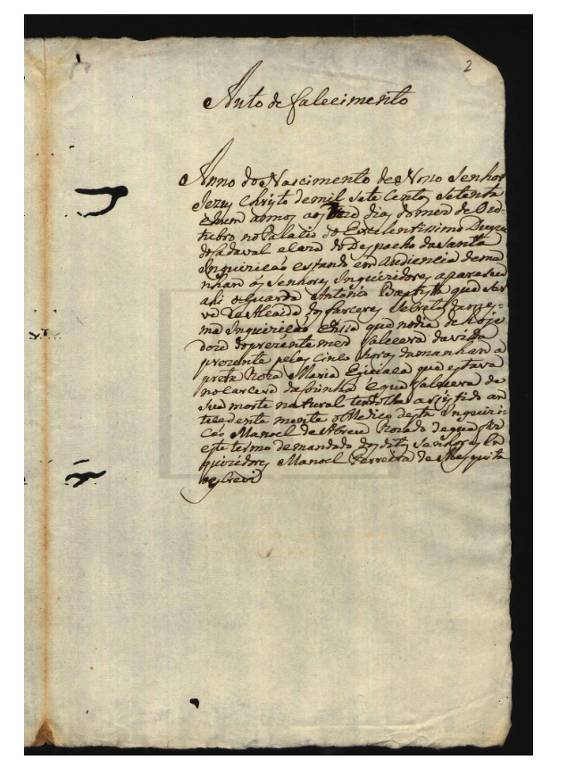 2
Auto de falecimento
Anno do Nascimento de Noso Senhor
Jezu Christo de mil sete Centos setenta
e hum annos aos doze dias do mes de Ou-
tubro no Palacio do Excelentissimo Duque
do Cadaval e caza do Despacho da Santa
Inquiriçaõ estando em audiencia de ma
nhan os Senhores Inquizidores apareseu
ahi o Guarda Antonio Baptista que ser
ve de Alcaide dos carceres Secretos da mes-
ma Inquiriçaõ e disse que no dia de Hoje
doze do prezente mes falecera da vida
prezente pelas cinco horas da manhan a
preta Roza Maria Egiciaca que estava
no carcere da cozinha e que falecera de
sua morte natural tendolhe asistido an
tecedente mente o Medico desta Inquiri-
çaõ Manoel de Abreu de que fiz
este termo de mandado dos ditos Senhores In
quizidores Manoel Ferreira de Mesquita
o escrevi